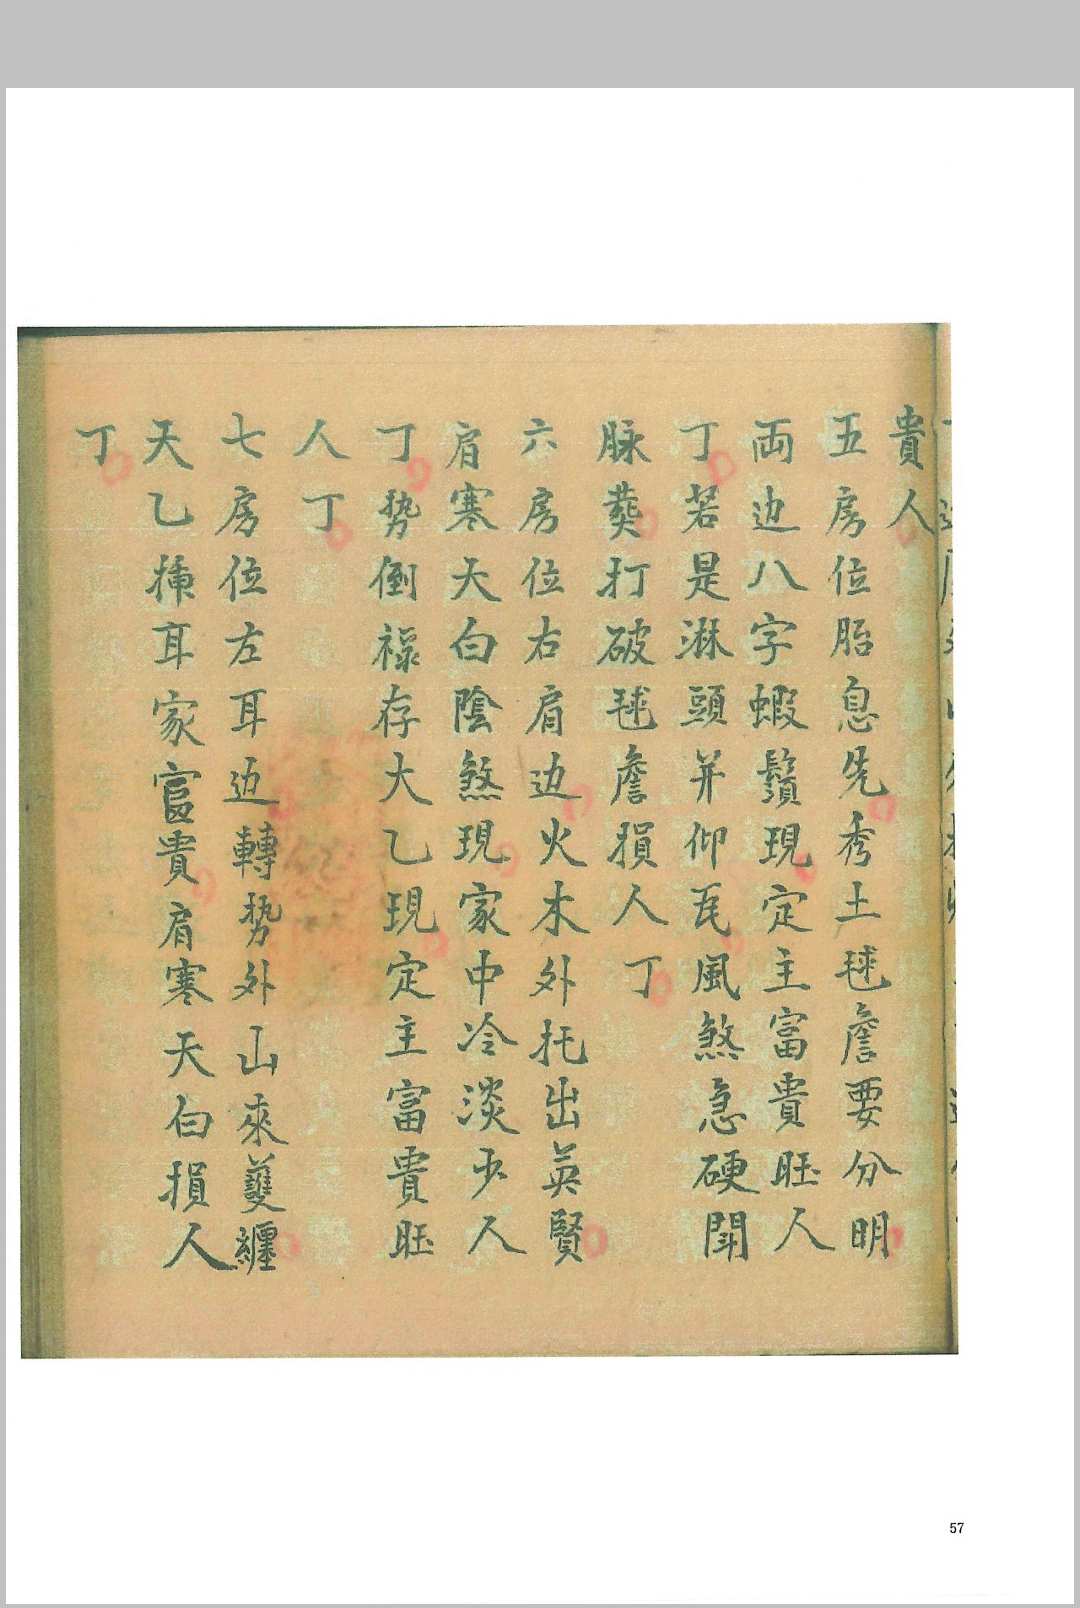 貴人
五房位胎息先秀土毬詹要分明
両边八字蝦鬚現定主富貴旺人
丁若是淋頭并仰瓦風煞急硬閗
脉葬打破毬詹損人丁
六房位右肩边火木外托出英賢
肩寒天白陰煞現家中冷淡少人
丁势倒禄存大乙現定主富貴旺
人丁
七房位左耳边轉势外山來護纏
天乙揷耳家富貴肩寒天白損人
丁
57